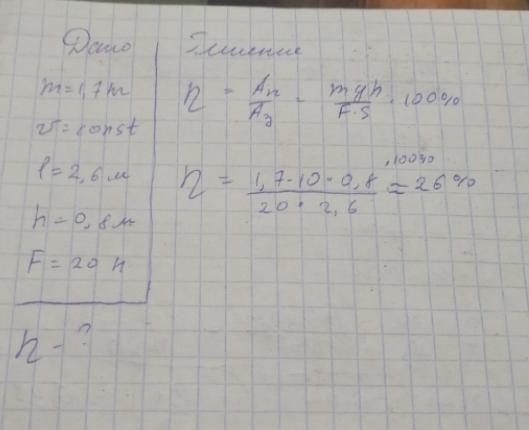 Дано
m=1,7 кг
v=const
l=2,6 м
h=0,8 м
F=20 Н
η - ?
Решение
η = Aп/Aз = mgh/F·S · 100%
η = 1,7·10·0,8/20·2,6 ·100% ≈ 26%